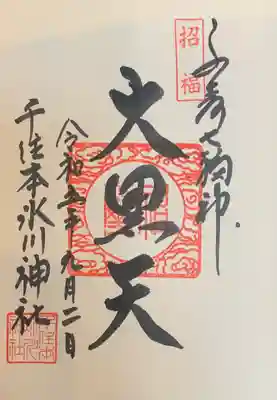 招福
千寿七福神
大黒天
令和五年九月二日
千住本氷川神社